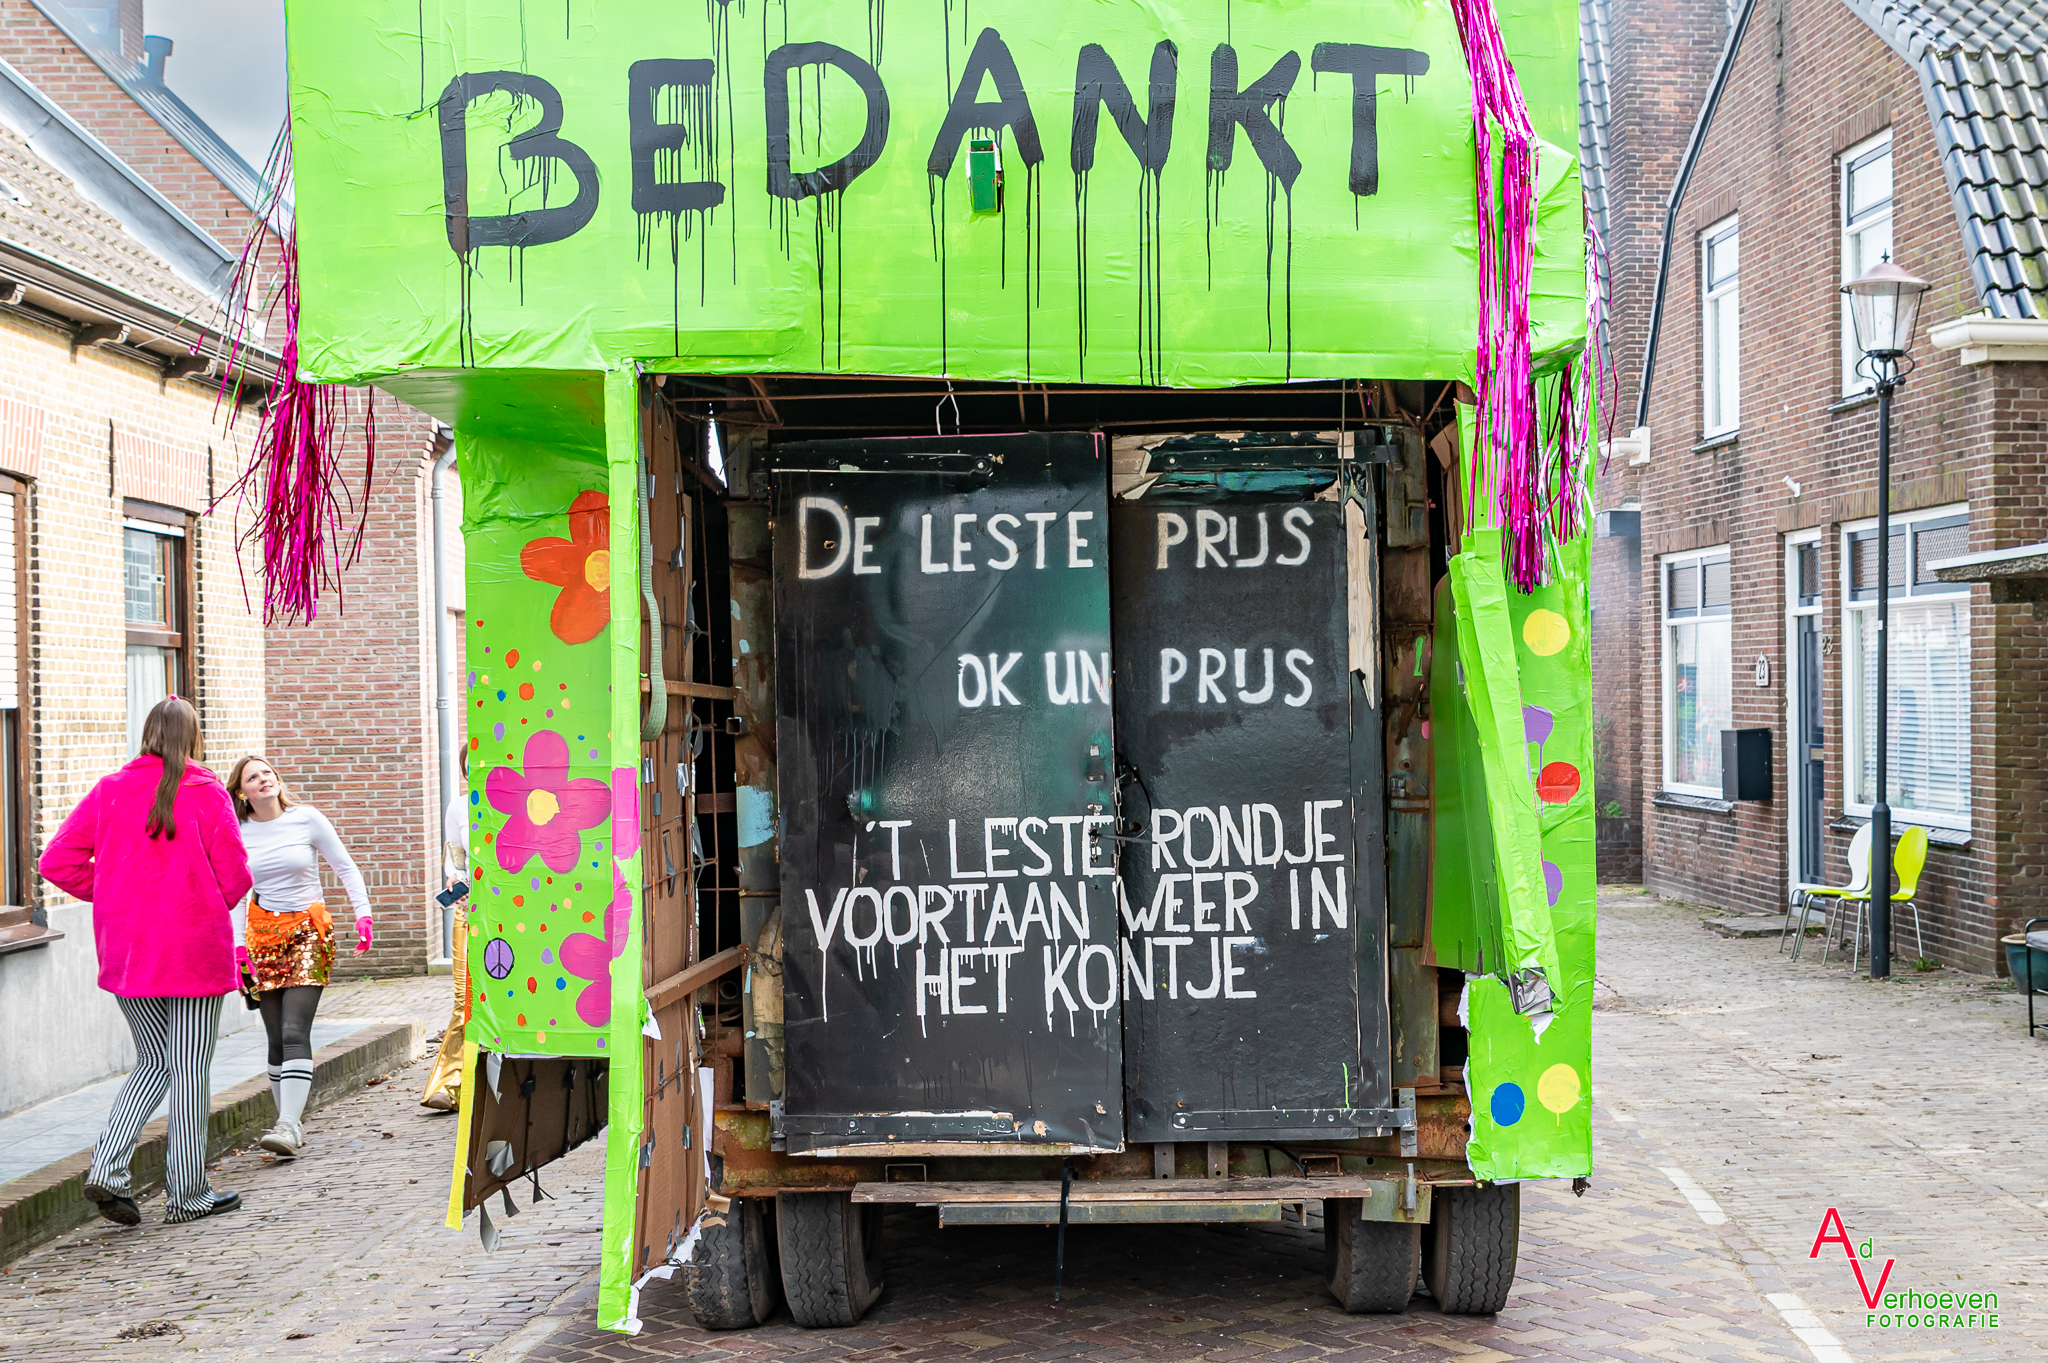 BEDANKT
DE LESTE PRIJS
OK UN PRIJS
'T LESTE RONDJE
VOORTAAN WEER IN
HET KONTJE
23
23
Ad
Verhoeven
FOTOGRAFIE